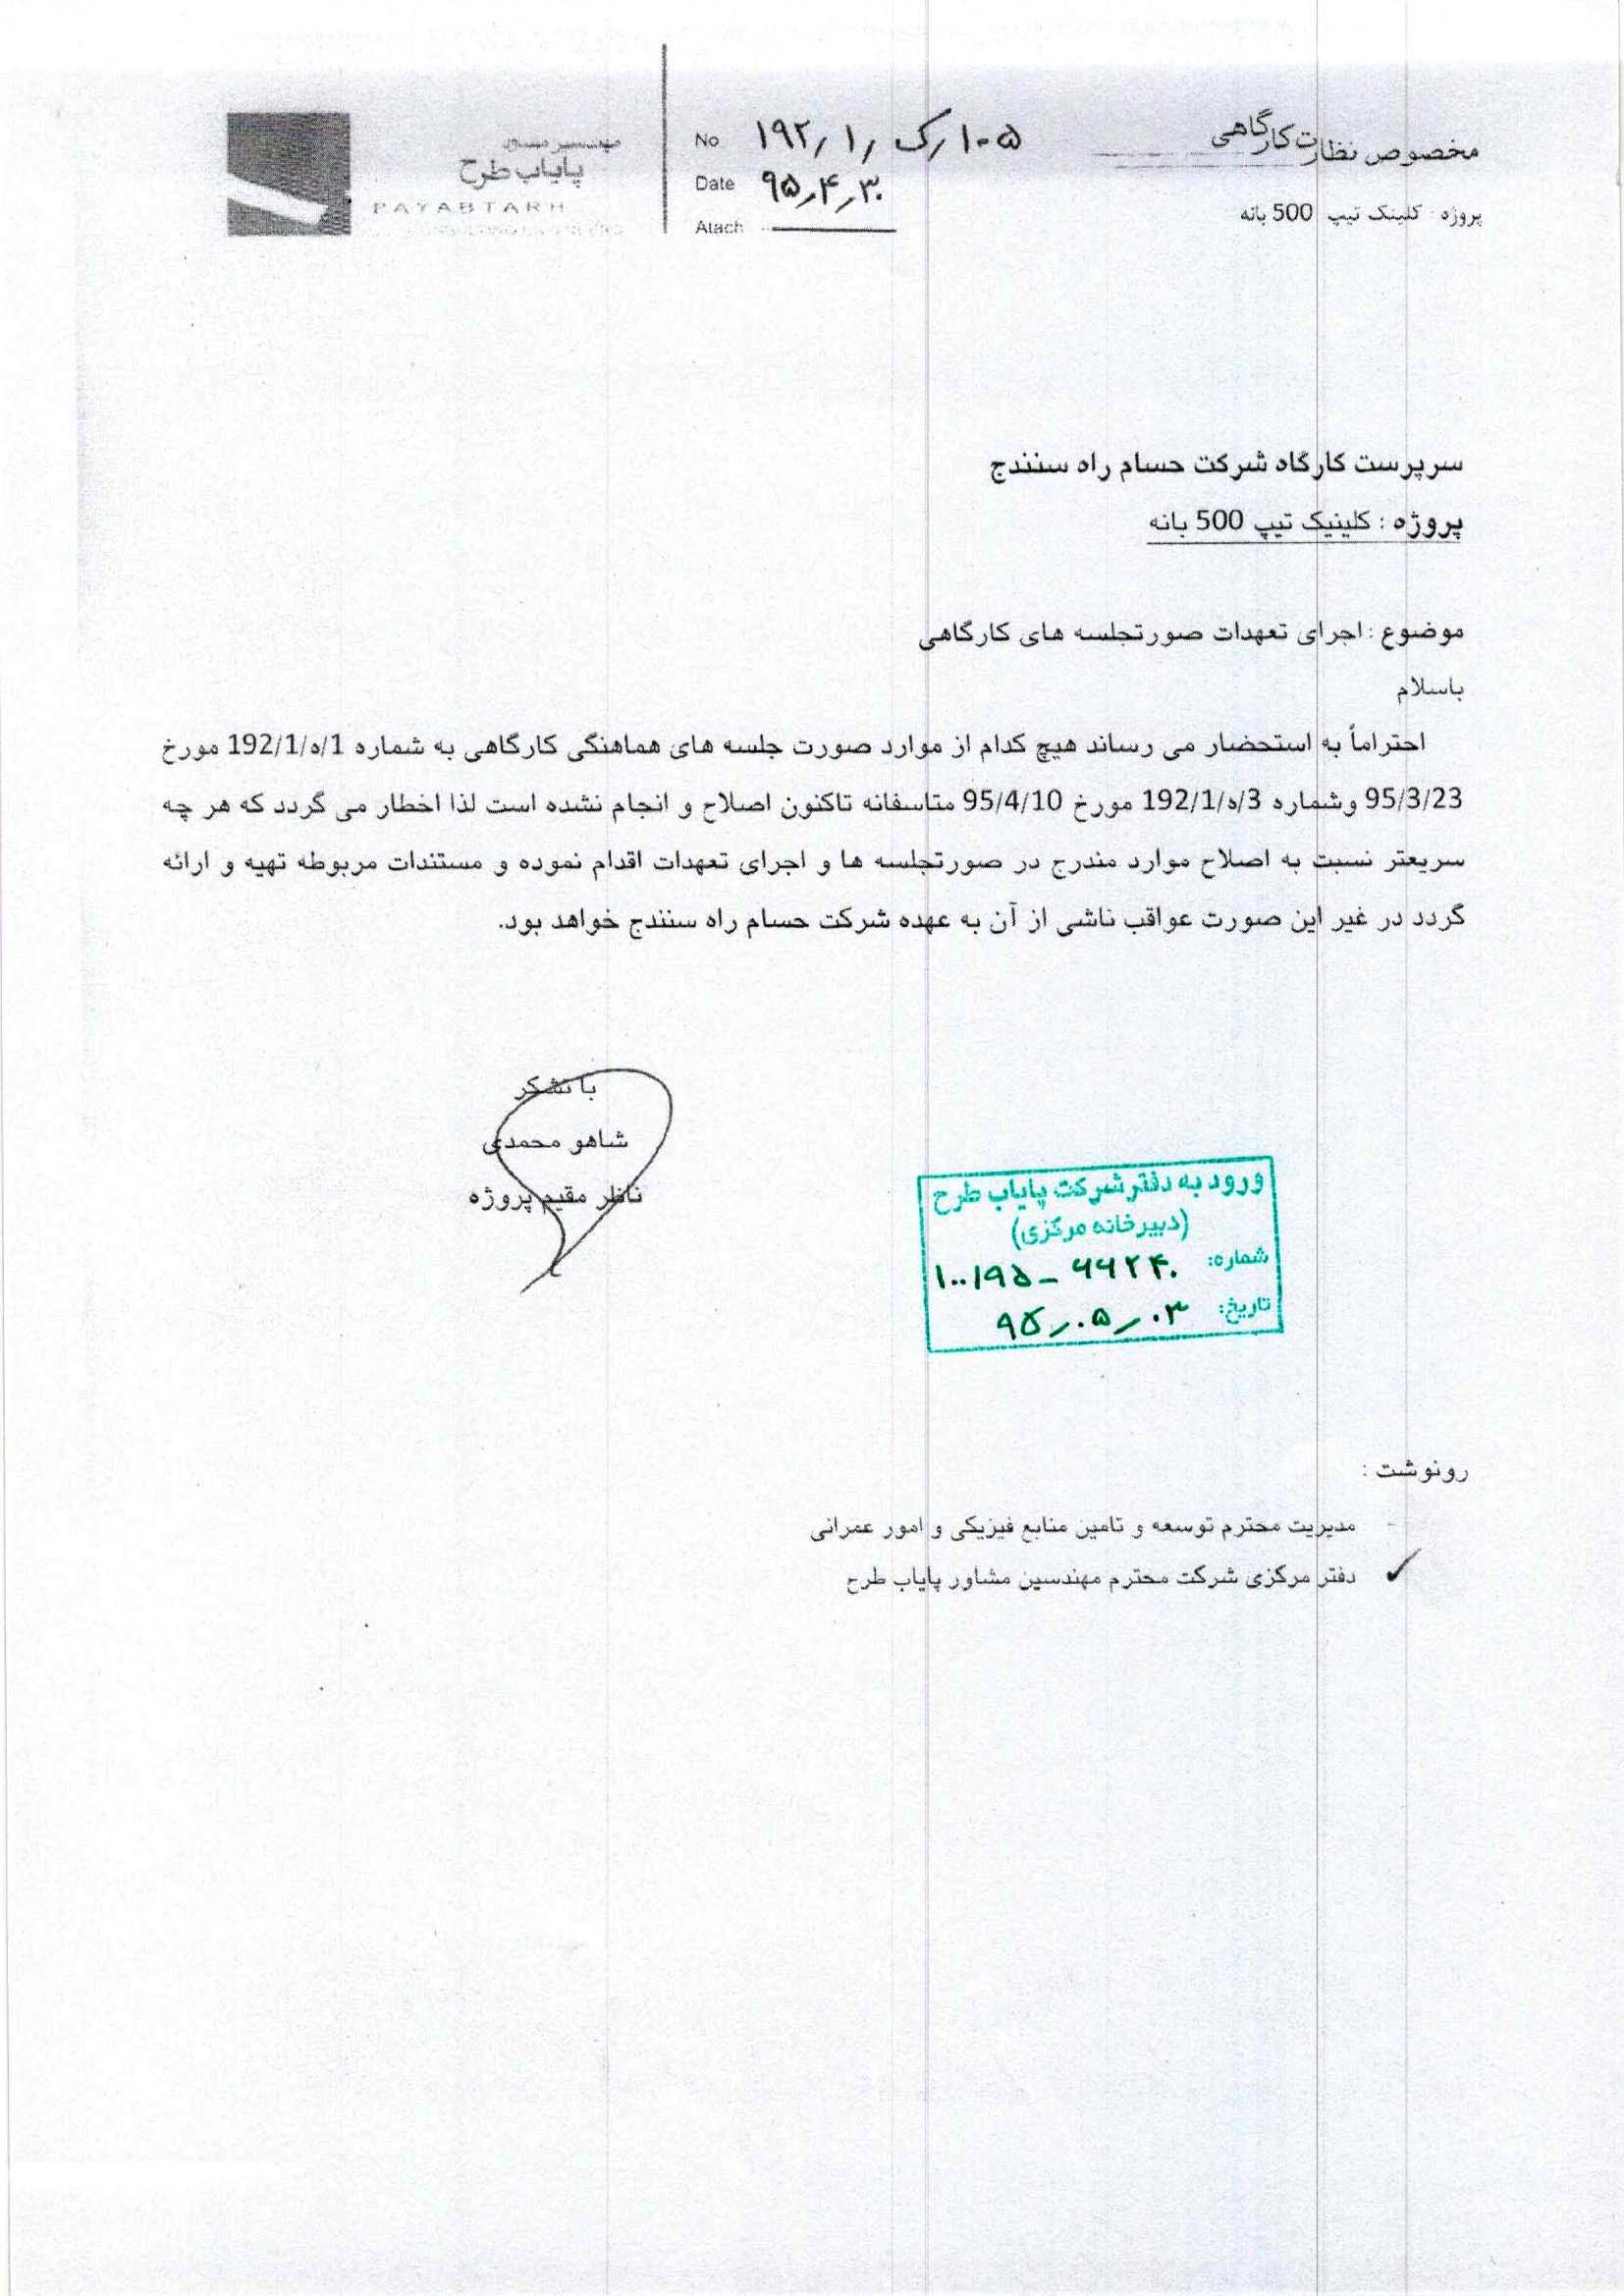 مخصوص نظارت کارگاهی
پروژه : کلینک تیپ 500 بانه
No ۱۹۲/۱/ک/۱۰۵
Date ۹۵/۴/۳۰
Atach
پایاب طرح
PAYABTARH
سرپرست کارگاه شرکت حسام راه سنندج
پروژه : کلینیک تیپ 500 بانه
موضوع : اجرای تعهدات صورتجلسه های کارگاهی
باسلام
احتراماً به استحضار می رساند هیچ کدام از موارد صورت جلسه های هماهنگی کارگاهی به شماره 192/1/ه/1 مورخ
95/3/23 وشماره 192/1/ه/3 مورخ 95/4/10 متاسفانه تاکنون اصلاح و انجام نشده است لذا اخطار می گردد که هر چه
سریعتر نسبت به اصلاح موارد مندرج در صورتجلسه ها و اجرای تعهدات اقدام نموده و مستندات مربوطه تهیه و ارائه
گردد در غیر این صورت عواقب ناشی از آن به عهده شرکت حسام راه سنندج خواهد بود.
با تشکر
شاهو محمدی
ناظر مقیم پروژه
ورود به دفتر شرکت پایاب طرح
(دبیرخانه مرکزی)
شماره: ۱۰۰۱۹۵-۶۶۲۴۰
تاریخ: ۹۵/۰۵/۰۳
رونوشت :
- مدیریت محترم توسعه و تامین منابع فیزیکی و امور عمرانی
✓ دفتر مرکزی شرکت محترم مهندسین مشاور پایاب طرح